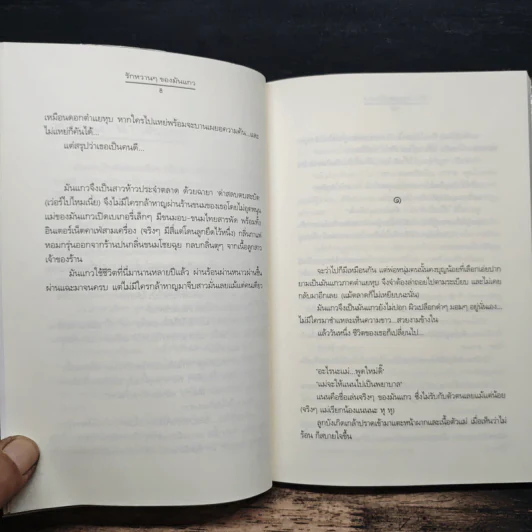 รักหวานๆ ของมันแกว
8
เหมือนดอกตำแยทุบ หากใครไปแหย่พร้อมจะบานเผยอความคัน...และ
ไม่แหย่ก็คันได้...
แต่สรุปว่าเธอเป็นคนดี...
มันแกวจึงเป็นสาวห้าวประจำตลาด ด้วยฉายา
(เว่อร์ไปไหมเนี่ย) จึงไม่มีใครกล้าพูดผ่านร้านขนมของเธอโดยไม่อุดหนุน
แม่ของมันแกวเปิดเบเกอรี่เล็กๆ มีขนมอบ-ขนมไทยสารพัด พร้อมทั้ง
อินเตอร์เน็ตคาเฟ่สามเครื่อง (จริงๆ มีสี่แต่โดนลูกยึดไว้หนึ่ง) กลิ่นกาแฟ
หอมกรุ่นออกจากร้านปนกลิ่นขนมไชยฉุย กลบกลิ่นตุๆ จากเนื้อลูกสาว
เจ้าของร้าน
มันแกวใช้ชีวิตที่นี่มานานหลายปีแล้ว ผ่านร้อนผ่านหนาวผ่านชื้น
ผ่านแฉะมาจนครบ แต่ไม่มีใครกล้าหาญมาจีบสาวมันเลยแม้แต่คนเดียว
๑
จะว่าไปก็มีเหมือนกัน แต่พ่อหนุ่มคนนั้นคงบุญน้อยที่เลือกเอ่ยปาก
ยามเป็นมันแกวภาคตำแยทุบ จึงจำต้องล่าถอยไปตามระเบียบ และไม่เคย
กลับมาอีกเลย (แม้ตลาดก็ไม่เหยียบนะนั่น)
มันแกวจึงเป็นมันแกวยังไม่ปอก ผิวเปลือกดำๆ มอมๆ อยู่นั่นเอง...
ไม่มีใครมาชำแหละเห็นความขาว...สวยงามข้างใน
แล้ววันหนึ่ง ชีวิตของเธอก็เปลี่ยนไป...
'อะไรนะแม่...พูดใหม่ดิ๊'
'แม่จะให้แนนไปเป็นพยาบาล'
แนนคือชื่อเล่นจริงๆ ของมันแกว ซึ่งไม่รับกับตัวตนเลยแม้แต่น้อย
(จริงๆ แม่เรียกน้องแนนนะ หุ หุ)
ลูกบังเกิดเกล้าปราดเข้ามาแตะหน้าผากและเนื้อตัวแม่ เมื่อเห็นว่าไม่
ร้อน ก็สบายใจขึ้น